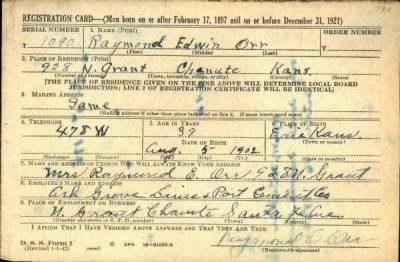 REGISTRATION CARD—(Men born on or after February 17, 1897 and on or before December 31, 1921)
SERIAL NUMBER 1. NAME (Print) ORDER NUMBER
1090 Raymond Edwin Orr
(First) (Middle) (Last)
2. PLACE OF RESIDENCE (Print)
928 N. Grant Chanute Kans.
(Number and street) (Town, township, village, or city) (County) (State)
[THE PLACE OF RESIDENCE GIVEN ON THE LINE ABOVE WILL DETERMINE LOCAL BOARD
JURISDICTION; LINE 2 OF REGISTRATION CERTIFICATE WILL BE IDENTICAL]
3. MAILING ADDRESS
Same
[Mailing address if other than place indicated on line 2. If same insert word same]
4. TELEPHONE 5. AGE IN YEARS 6. PLACE OF BIRTH
478 W 39 Erie Kans
DATE OF BIRTH
Aug. 5 1902
7. NAME AND ADDRESS OF PERSON WHO WILL ALWAYS KNOW YOUR ADDRESS
Mrs Raymond E. Orr 928 N. Grant
8. EMPLOYER'S NAME AND ADDRESS
Ash Grove Lime & Port Cement Co
9. PLACE OF EMPLOYMENT OR BUSINESS
N. Grant Chanute Santa Fe Ave.
I AFFIRM THAT I HAVE VERIFIED ABOVE ANSWERS AND THAT THEY ARE TRUE.
D. S. S. Form 1
(Revised 1-1-42) (over) GPO
Raymond E. Orr